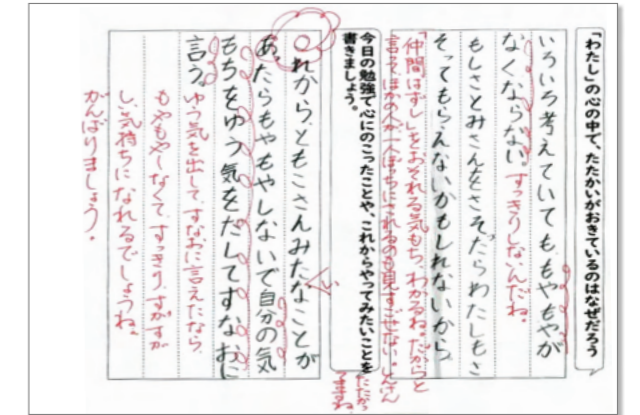 「わたし」の心の中で、たたかいがおきているのはなぜだろう
いろいろ考えていても、もやもやが
なくならない。すっきりしないんだね。
もしさとみさんをさそったらわたしもさ
そってもらえないかもしれないから。
「仲間はずし」をおそれる気もち、わかるね。だからと
言って、ほかの人が一人ぼっちにされるのも見すごせない。
今日の勉強で心にのこったことや、これからやってみたいことを
書きましょう。
これから、ともこさんみたいなことが
あったらもやもやしないで自分の気
もちをゆう気をだしてすなおに
言う。
ゆう気を出して、すなおに言えたなら、
もやもやしなくて、すっきり、すがすが
しい気持ちになれるでしょうね。
がんばりましょう。